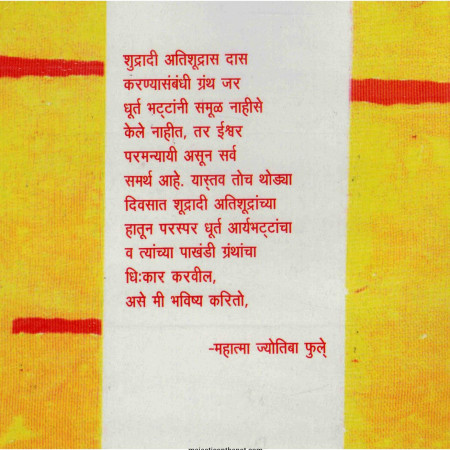 शुद्रादी अतिशूद्रास दास
करण्यासंबंधी ग्रंथ जर
धूर्त भट्टांनी समूळ नाहीसे
केले नाहीत, तर ईश्वर
परमन्यायी असून सर्व
समर्थ आहे. यास्तव तोच थोड्या
दिवसात शूद्रादी अतिशूद्रांच्या
हातून परस्पर धूर्त आर्यभट्टांचा
व त्यांच्या पाखंडी ग्रंथांचा
धि:कार करवील,
असे मी भविष्य करितो,
-महात्मा ज्योतिबा फुले्